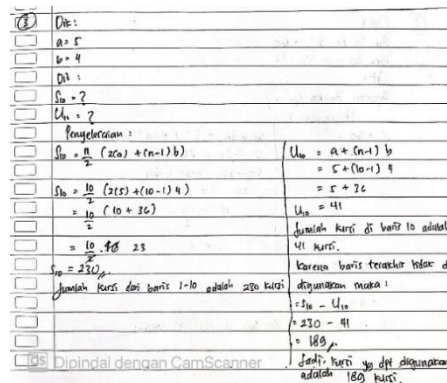 3
Dit :
a = 5
b = 4
Dit :
S₁₀ = ?
U₁₀ = ?
Penyelesaian :
S₁₀ = n/2 (2(a) + (n-1) b)
S₁₀ = 10/2 (2(5) + (10-1) 4)
= 10/2 (10 + 36)
= 10/2 . 46 23
S₁₀ = 230
Jumlah kursi dari baris 1-10 adalah 230 kursi
U₁₀ = a + (n-1) b
= 5 + (10-1) 4
= 5 + 36
U₁₀ = 41
Jumlah kursi di baris 10 adalah
41 kursi.
Karena baris terakhir tidak d
digunakan maka :
= S₁₀ - U₁₀
= 230 - 41
= 189
Jadi, kursi yg dpt digunakan
adalah 189 kursi.
CS Dipindai dengan CamScanner